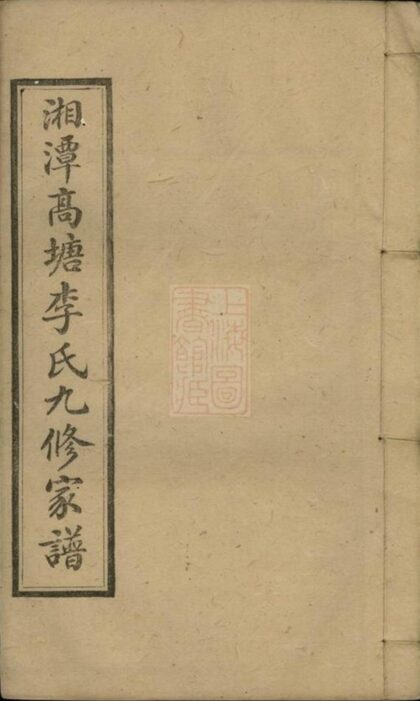 湘潭高塘李氏九修家譜
上海圖
書館藏